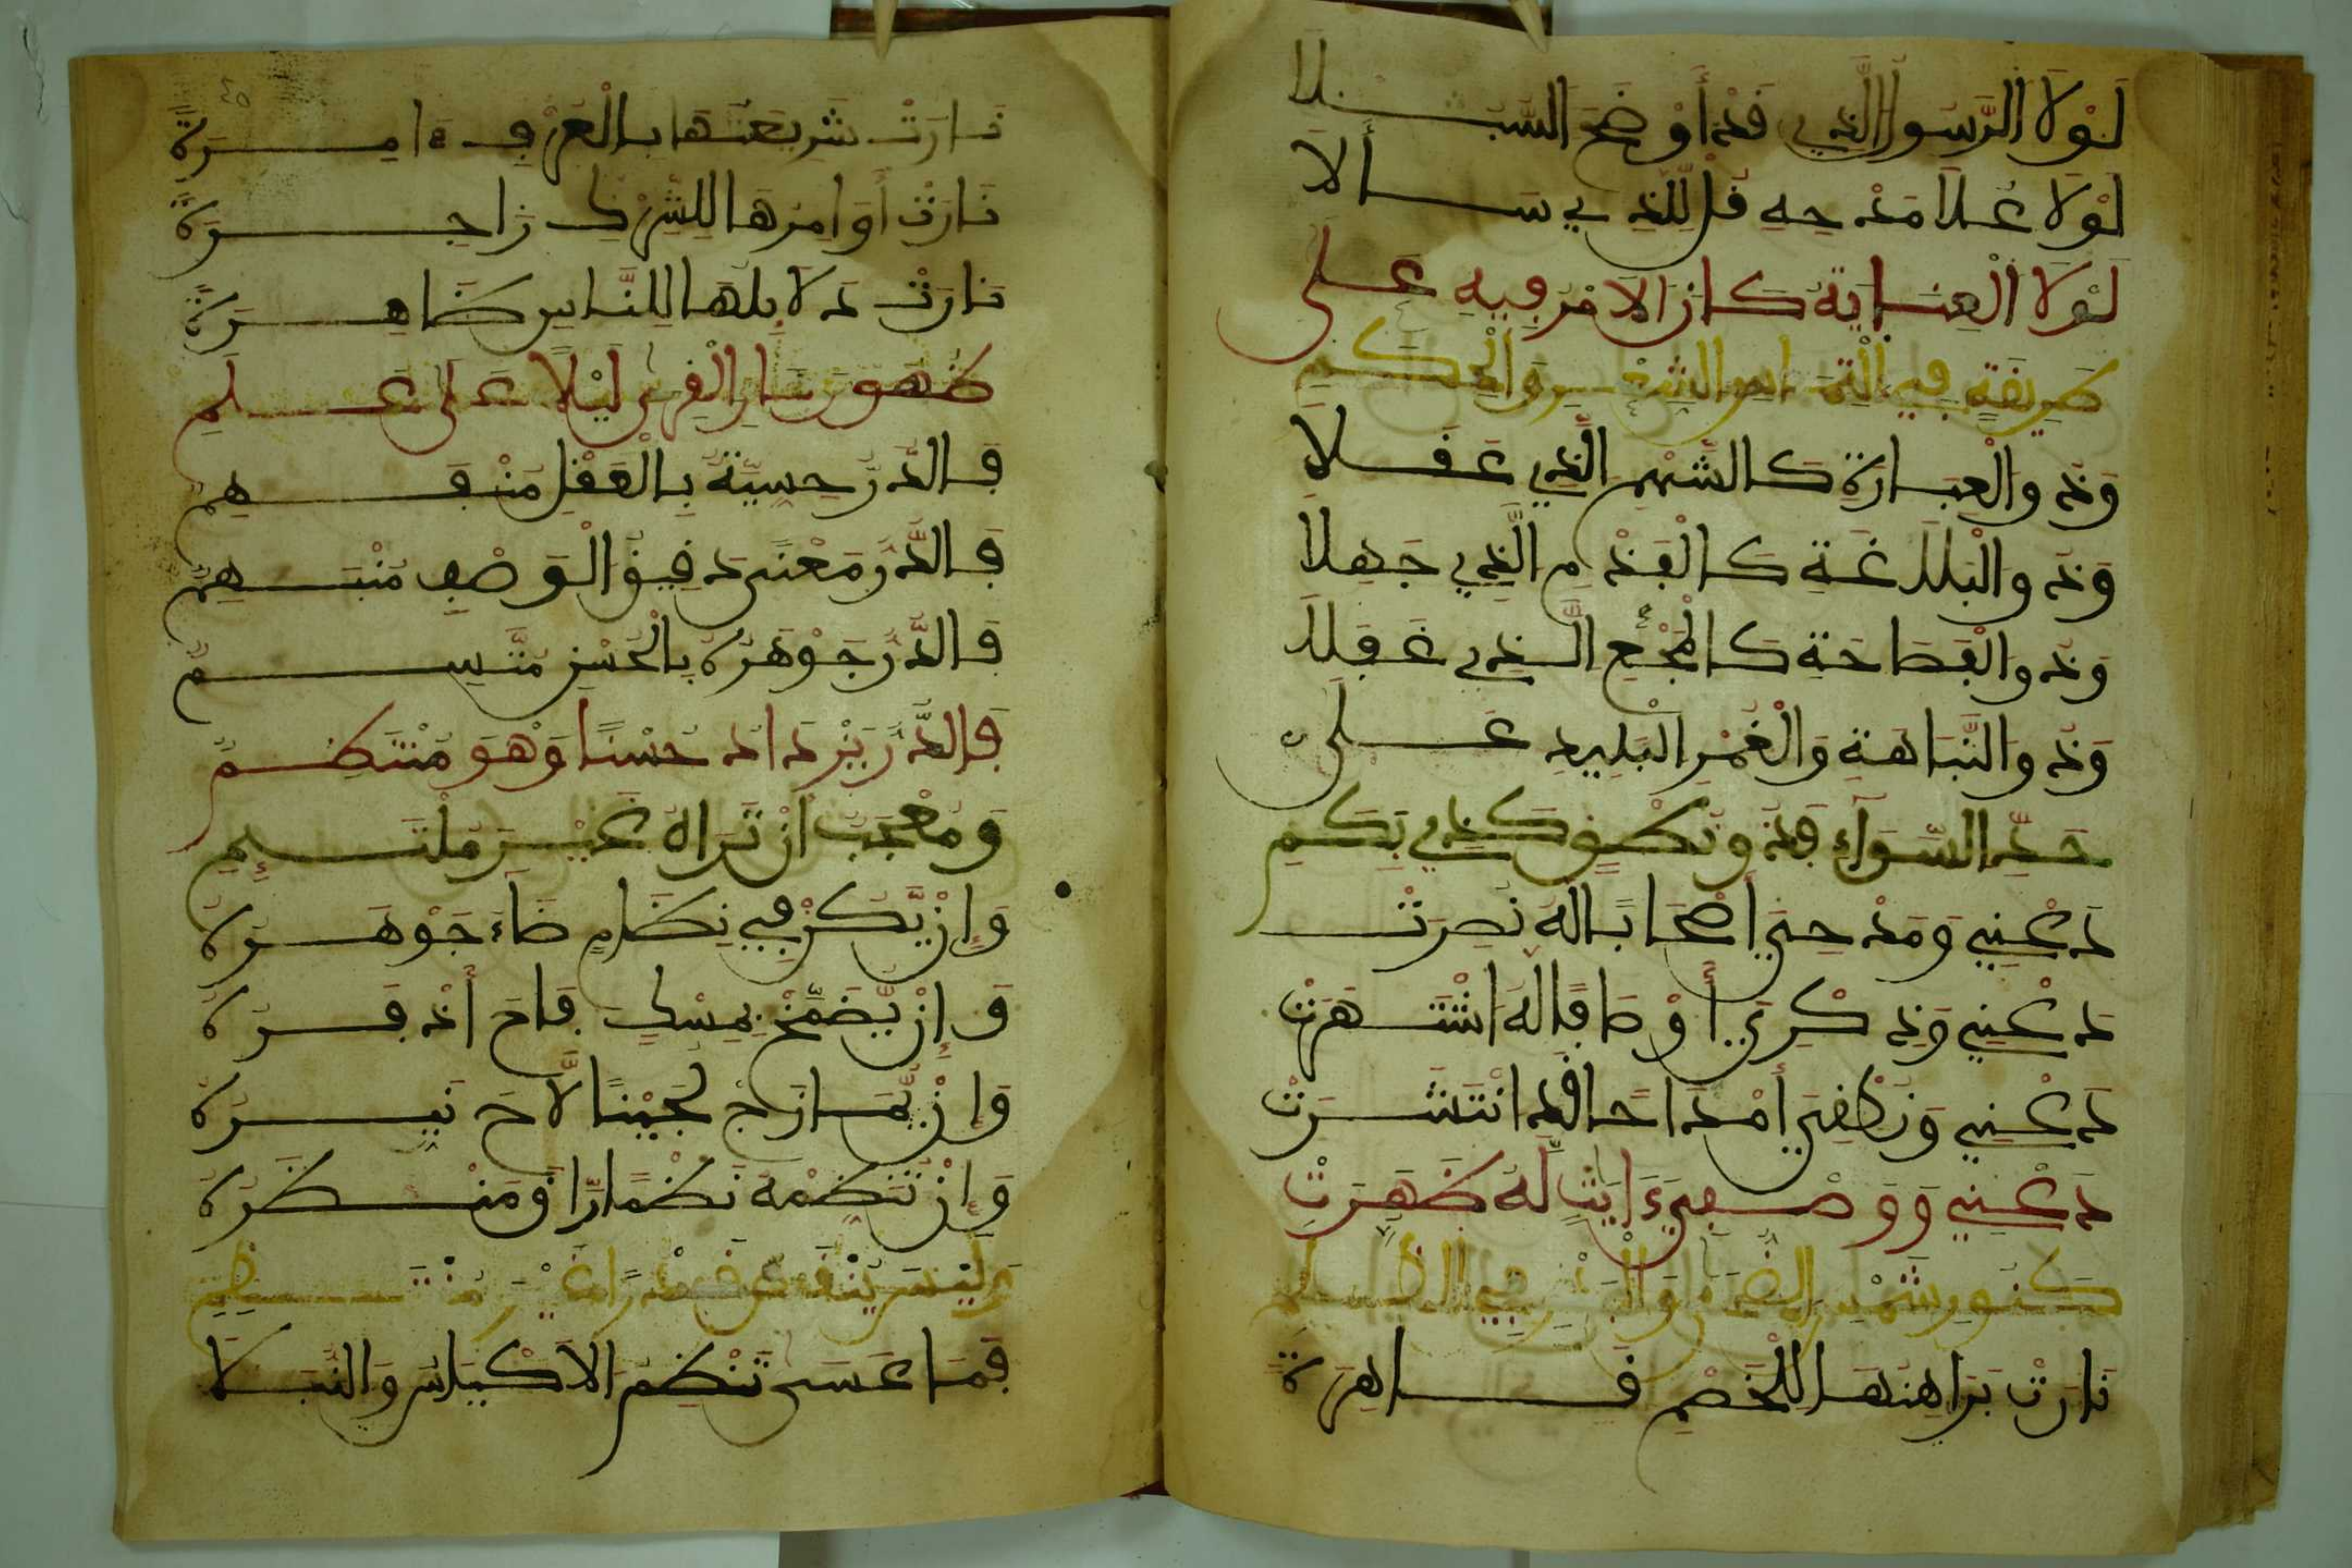 لَوْلَا الرَّسُولُ الَّذِي قَدْ أَوْضَحَ السُّبُلَا
لَوْلَا عُلَا مَدْحِهِ قُلْ لِلَّذِي سَأَلَا
لَوْلَا الْعِنَايَةُ كَانَ الْأَمْرُ فِيهِ عَلَى
وَذُو الْعِبَارَةِ كَالشَّهْمِ الَّذِي عَقَلَا
وَذُو الْبَلَاغَةِ كَالْفَدْمِ الَّذِي جَهِلَا
وَذُو الْفَصَاحَةِ كَ الَّذِي غَفَلَا
وَذُو النَّبَاهَةِ وَالْغَمْرُ الْبَلِيدُ عَلَى
حَدِّ السَّوَاءِ فَذُو نُطْقٍ كَذِي بَكَمِ
دَعْنِي وَمَدْحِيَ أَصْحَابًا لَهُ نَصَرَتْ
دَعْنِي وَذِكْرِيَ أَوْصَافًا لَهُ اشْتَهَرَتْ
دَعْنِي وَنَظْمِيَ أَمْدَاحًا لَقَدِ انْتَشَرَتْ
دَعْنِي وَوَصْفِيَ ءَايَاتٍ لَهُ ظَهَرَتْ
نَارَتْ بَرَاهِنُهَا لِلْخَصْمِ قَاهِرَةً
نَارَتْ شَرِيعَتُهَا بِالْعُرْفِ ءَامِرَةً
نَارَتْ أَوَامِرُهَا لِلشِّرْكِ زَاجِرَةً
نَارَتْ دَلَائِلُهَا لِلنَّاسِ ظَاهِرَةً
ظُهُورَ نَارِ الْقِرَى لَيْلًا عَلَى عَلَمِ
فَالدُّرُّ حِسِّيَّةً بِالْعَقْلِ مُنْفَهِمُ
فَالدُّرُّ مَعْنًى دَقِيقُ الْوَصْفِ مُنْبَهِمُ
فَالدُّرُّ جَوْهَرُهُ بِالْحُسْنِ مُتَّسِمُ
فَالدُّرُّ يَزْدَادُ حُسْنًا وَهْوَ مُنْتَظِمُ
وَمُعْجَبٌ أَنْ تَرَاهُ غَيْرَ مُلْتَئِمِ
وَإِنْ يَكُنْ فِي نِظَامٍ ضَاءَ جَوْهَرُهُ
وَإِنْ يُضَمَّخْ بِمِسْكٍ فَاحَ أَذْفَرُهُ
وَإِنْ يُمَازَجْ لُجَيْنًا لَاحَ نَيِّرُهُ
وَإِنْ تَنَظِّمْهُ نَظْمًا رَاقَ مَنْظَرُهُ
وَلَيْسَ يَنْقُصُ قَدْرًا غَيْرَ مُنْتَظِمِ
فَمَا عَسَى تَنْظِمُ الْأَكْيَاسُ وَالنُّبَلَا